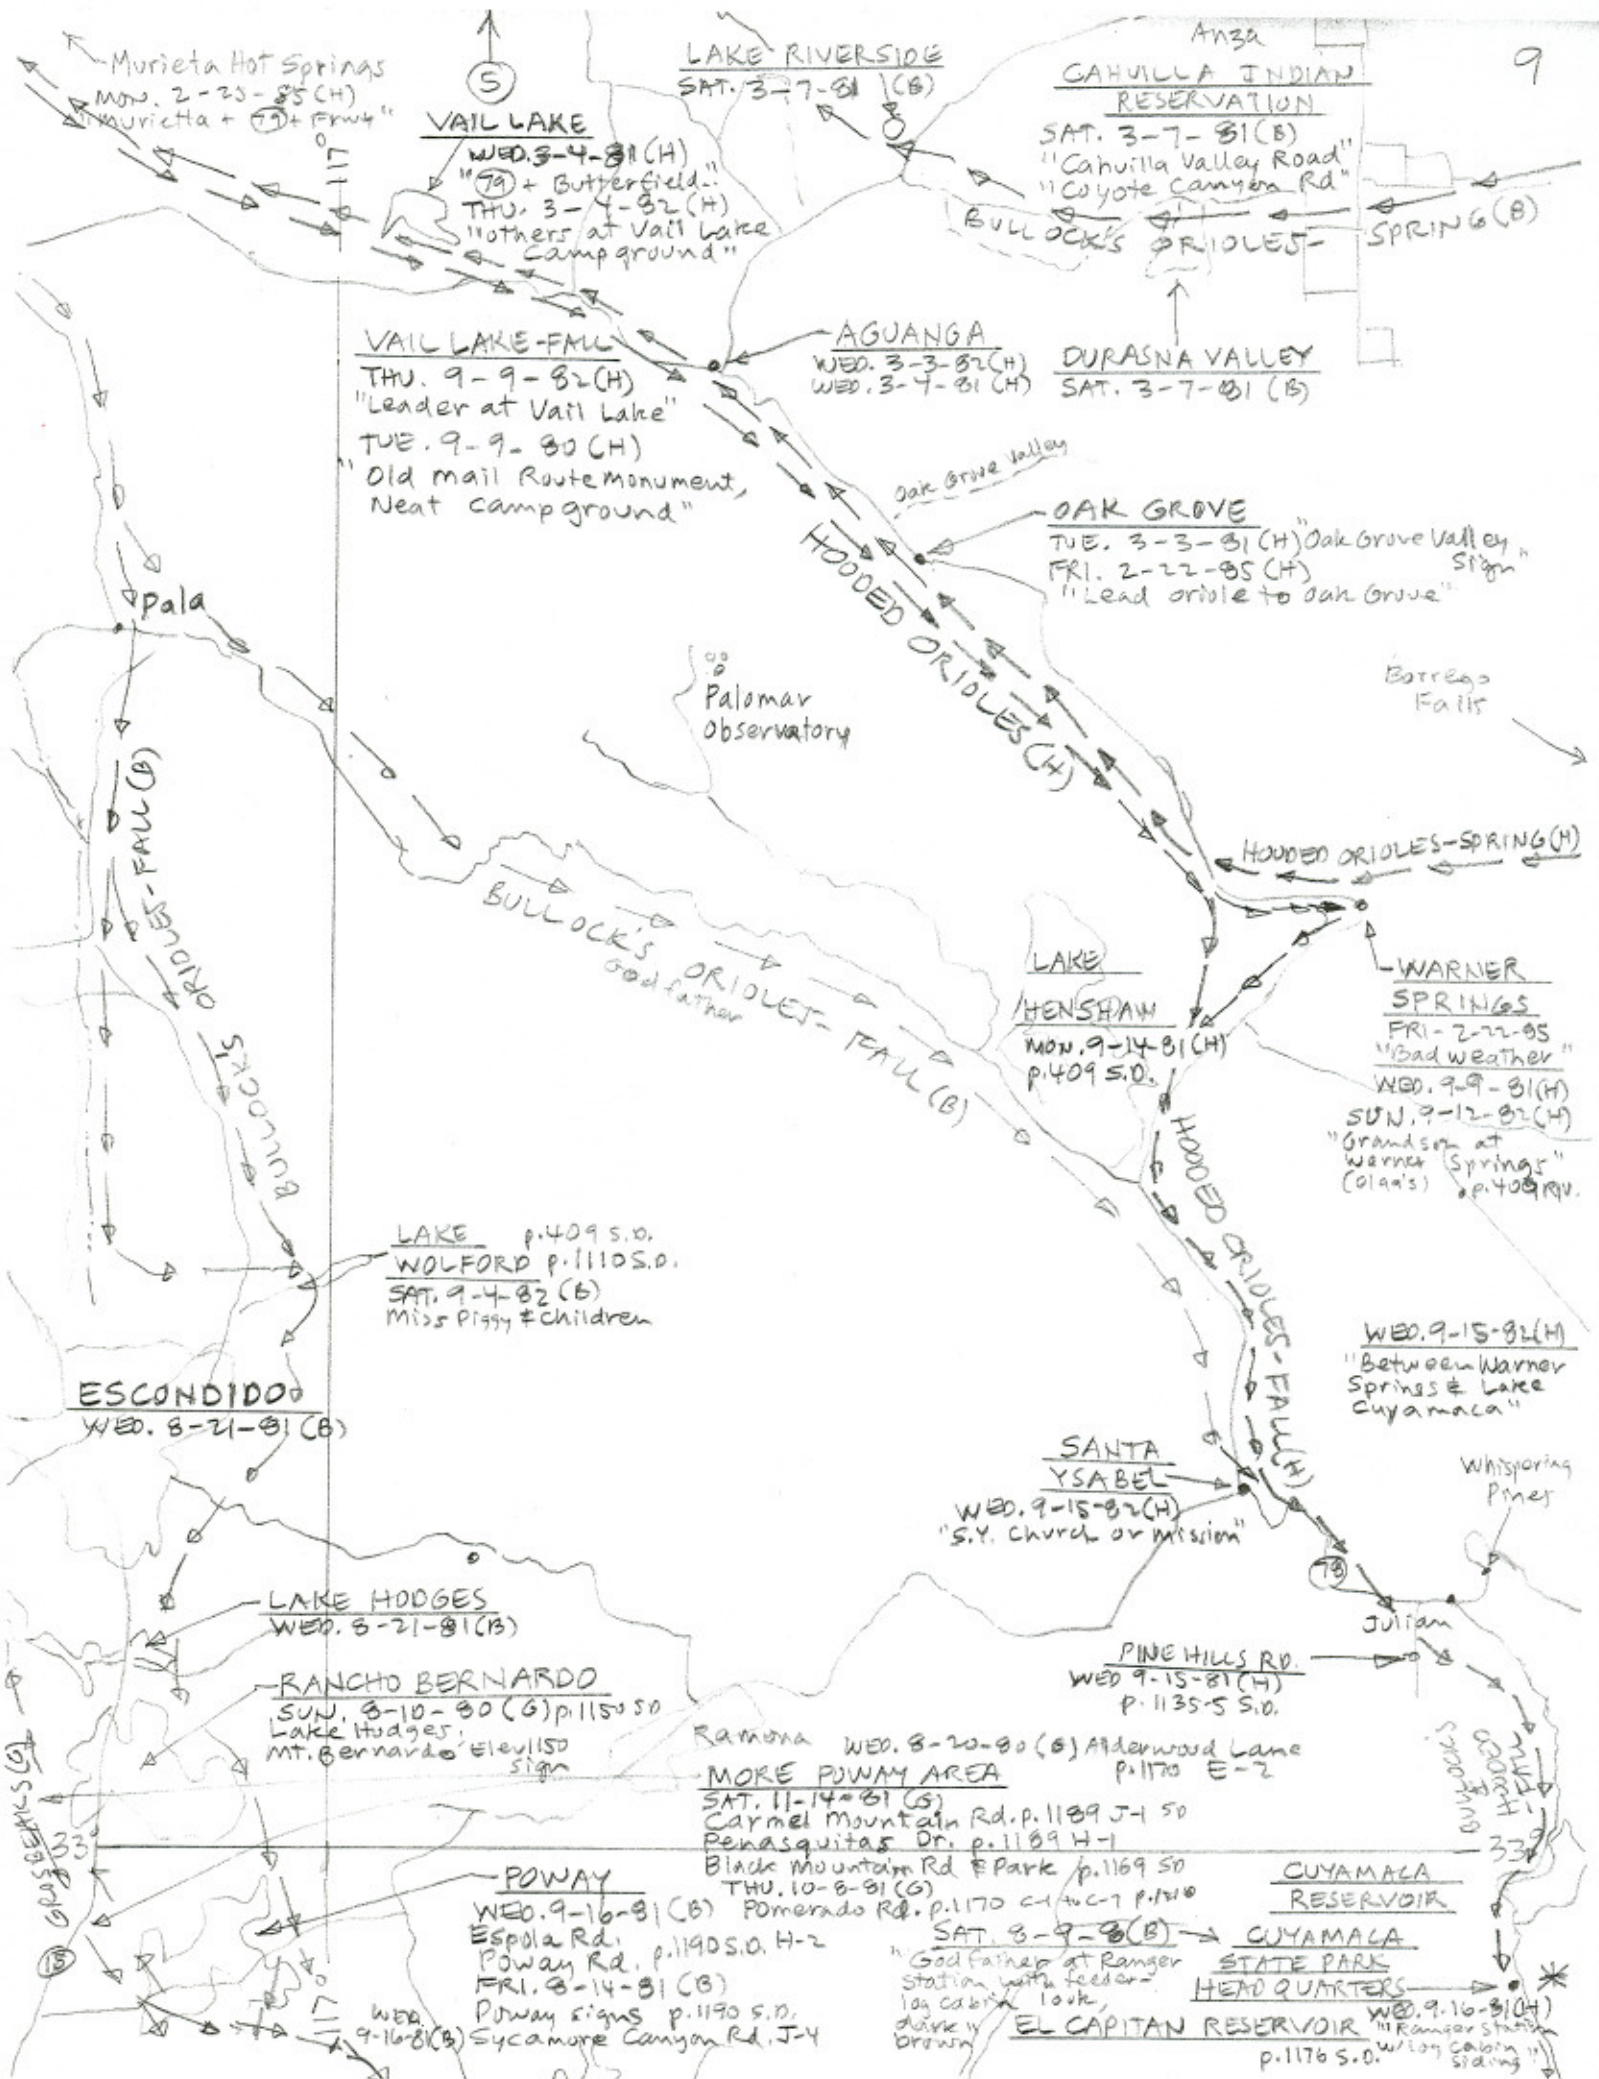 9
Murieta Hot Springs
MON. 2-25-85 (H)
"Murietta + 79 + Frwy"
5
117°
VAIL LAKE
WED. 3-4-81 (H)
"79 + Butterfield"
THU. 3-4-82 (H)
"others at Vail Lake
Campground"
LAKE RIVERSIDE
SAT. 3-7-81 (B)
Anza
CAHUILLA INDIAN
RESERVATION
SAT. 3-7-81 (B)
"Cahuilla Valley Road"
"Coyote Canyon Rd"
BULLOCK'S ORIOLES- SPRING (B)
VAIL LAKE-FALL
THU. 9-9-82 (H)
"Leader at Vail Lake"
TUE. 9-9-80 (H)
"Old Mail Route Monument,
Neat Campground"
AGUANGA
WED. 3-3-82 (H)
WED. 3-4-81 (H)
DURASNA VALLEY
SAT. 3-7-81 (B)
Oak Grove Valley
OAK GROVE
TUE. 3-3-81 (H) "Oak Grove Valley
Sign"
FRI. 2-22-85 (H)
"Lead oriole to Oak Grove"
HOODED ORIOLES (H)
Pala
Palomar
Observatory
Borrego
Falls
BULLOCK'S ORIOLES-FALL (B)
HOODED ORIOLES-SPRING (H)
BULLOCK'S ORIOLES-FALL (B)
Godfather
LAKE
HENSHAW
MON. 9-14-81 (H)
p.409 S.D.
WARNER
SPRINGS
FRI- 2-22-85
"Bad weather"
WED. 9-9-81 (H)
SUN. 9-12-82 (H)
"Grandson at
Warner Springs"
(Olga's) p.409
HOODED ORIOLES-FALL (H)
LAKE p.409 S.D.
WOLFORD p.1110 S.D.
SAT. 9-4-82 (B)
Miss Piggy & children
WED. 9-15-82 (H)
"Between Warner
Springs & Lake
Cuyamaca"
ESCONDIDO
WED. 8-21-81 (B)
SANTA
YSABEL
WED. 9-15-82 (H)
"S.Y. Church or mission"
Whispering
Pines
78
Julian
LAKE HODGES
WED. 8-21-81 (B)
PINE HILLS RD.
WED 9-15-81 (H)
p.1135-5 S.D.
RANCHO BERNARDO
SUN. 8-10-80 (G) p.1150 SD
Lake Hodges,
Mt. Bernardo Elev 1150
sign
Ramona WED. 8-20-80 (G) Alderwood Lane
p.1170 E-2
MORE POWAY AREA
SAT. 11-14-81 (G)
Carmel Mountain Rd. p.1189 J-1 SD
Penasquitas Dr. p.1189 H-1
Black Mountain Rd & Park p.1169 SD
THU. 10-8-81 (G)
Pomerado Rd. p.1170 C-1 to C-7
BULLOCK'S
HOODED
GROSBEAKS (G)
33°
33°
15
POWAY
WED. 9-16-81 (B)
Espola Rd.
Poway Rd. p.1190 S.D. H-2
FRI. 8-14-81 (B)
Poway signs p.1190 S.D.
WED. 9-16-81 (B) Sycamore Canyon Rd. J-4
117°
CUYAMACA
RESERVOIR
SAT. 8-9-8 (B)
"God father at Ranger
Station with feeder-
log cabin look,
dark
brown"
CUYAMACA
STATE PARK
HEADQUARTERS
WED. 9-16-81 (H)
"Ranger Station
w/log cabin
siding"
EL CAPITAN RESERVOIR
p.1176 S.D.